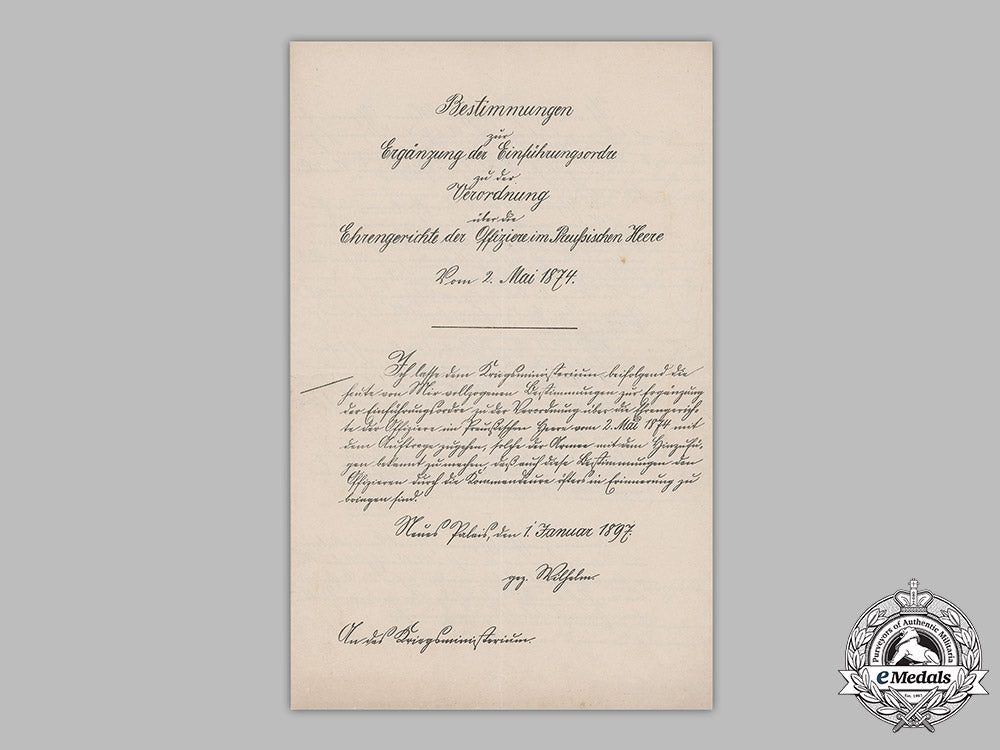 Bestimmungen
zur
Ergänzung der Einführungsordre
zu der
Verordnung
über die
Ehrengerichte der Offiziere im Preußischen Heere
Vom 2. Mai 1874.
Ich lasse dem Kriegsministerium beifolgend die
heute von Mir vollzogenen Bestimmungen zur Ergänzung
der Einführungsordre zu der Verordnung über die Ehrengerich-
te der Offiziere im Preußischen Heere vom 2. Mai 1874 mit
dem Auftrage zugehen, solche der Armee mit dem Hinzufü-
gen bekannt zu machen, daß auch diese Bestimmungen den
Offizieren durch die Kommandeure öfters in Erinnerung zu
bringen sind.
Neues Palais, den 1. Januar 1897.
gez. Wilhelm.
An das Kriegsministerium.
Purveyors of Authentic Militaria
eMedals